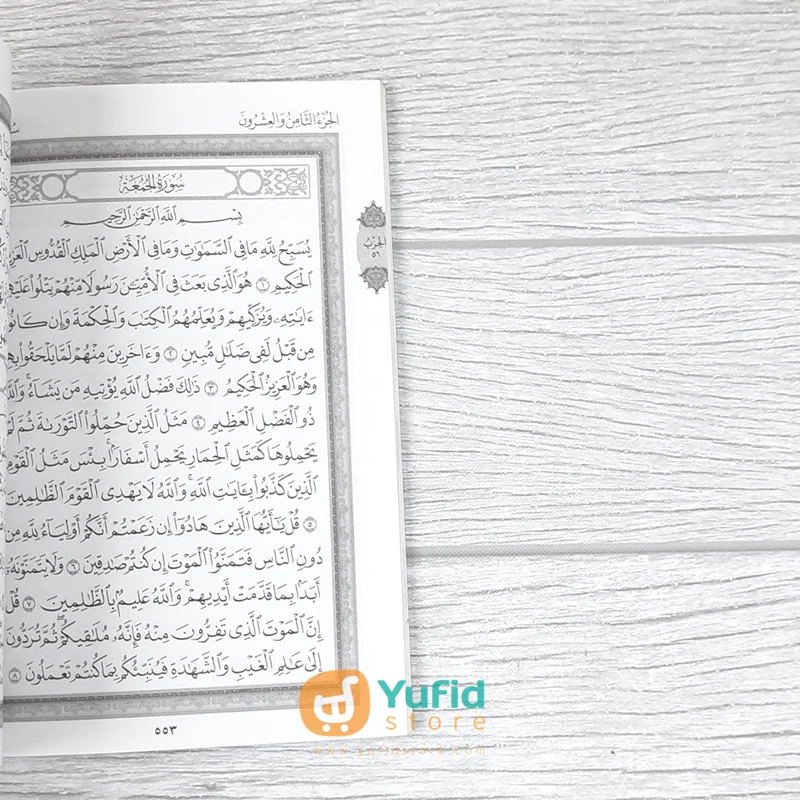 الجُزْءُ الثَّامِنُ وَالعِشْرُونَ
سُورَةُ الجُمُعَةِ
بِسْمِ اللَّهِ الرَّحْمَٰنِ الرَّحِيمِ
يُسَبِّحُ لِلَّهِ مَا فِي السَّمَٰوَٰتِ وَمَا فِي الْأَرْضِ الْمَلِكِ الْقُدُّوسِ
الْحَكِيمِ ١ هُوَ الَّذِي بَعَثَ فِي الْأُمِّيِّـۧنَ رَسُولًا مِّنْهُمْ يَتْلُوا۟
ءَايَٰتِهِۦ وَيُزَكِّيهِمْ وَيُعَلِّمُهُمُ الْكِتَٰبَ وَالْحِكْمَةَ وَإِن كَانُوا
مِن قَبْلُ لَفِي ضَلَٰلٍ مُّبِينٍ ٢ وَءَاخَرِينَ مِنْهُمْ لَمَّا يَلْحَقُوا۟
وَهُوَ الْعَزِيزُ الْحَكِيمُ ٣ ذَٰلِكَ فَضْلُ اللَّهِ يُؤْتِيهِ مَن يَشَآءُ ۚ وَاللَّهُ
ذُو الْفَضْلِ الْعَظِيمِ ٤ مَثَلُ الَّذِينَ حُمِّلُوا۟ التَّوْرَىٰةَ ثُمَّ لَمْ
يَحْمِلُوهَا كَمَثَلِ الْحِمَارِ يَحْمِلُ أَسْفَارًۢا ۚ بِئْسَ مَثَلُ الْقَوْمِ
الَّذِينَ كَذَّبُوا۟ بِـَٔايَٰتِ اللَّهِ ۚ وَاللَّهُ لَا يَهْدِي الْقَوْمَ الظَّٰلِمِينَ
٥ قُلْ يَٰٓأَيُّهَا الَّذِينَ هَادُوٓا۟ إِن زَعَمْتُمْ أَنَّكُمْ أَوْلِيَآءُ لِلَّهِ مِن
دُونِ النَّاسِ فَتَمَنَّوُا۟ الْمَوْتَ إِن كُنتُمْ صَٰدِقِينَ ٦ وَلَا يَتَمَنَّوْنَهُۥٓ
أَبَدًۢا بِمَا قَدَّمَتْ أَيْدِيهِمْ ۚ وَاللَّهُ عَلِيمٌۢ بِالظَّٰلِمِينَ ٧ قُلْ
إِنَّ الْمَوْتَ الَّذِي تَفِرُّونَ مِنْهُ فَإِنَّهُۥ مُلَٰقِيكُمْ ۖ ثُمَّ تُرَدُّونَ
إِلَىٰ عَٰلِمِ الْغَيْبِ وَالشَّهَٰدَةِ فَيُنَبِّئُكُم بِمَا كُنتُمْ تَعْمَلُونَ ٨
الحِزْبُ
٥٦
٥٥٣
Yufid
store